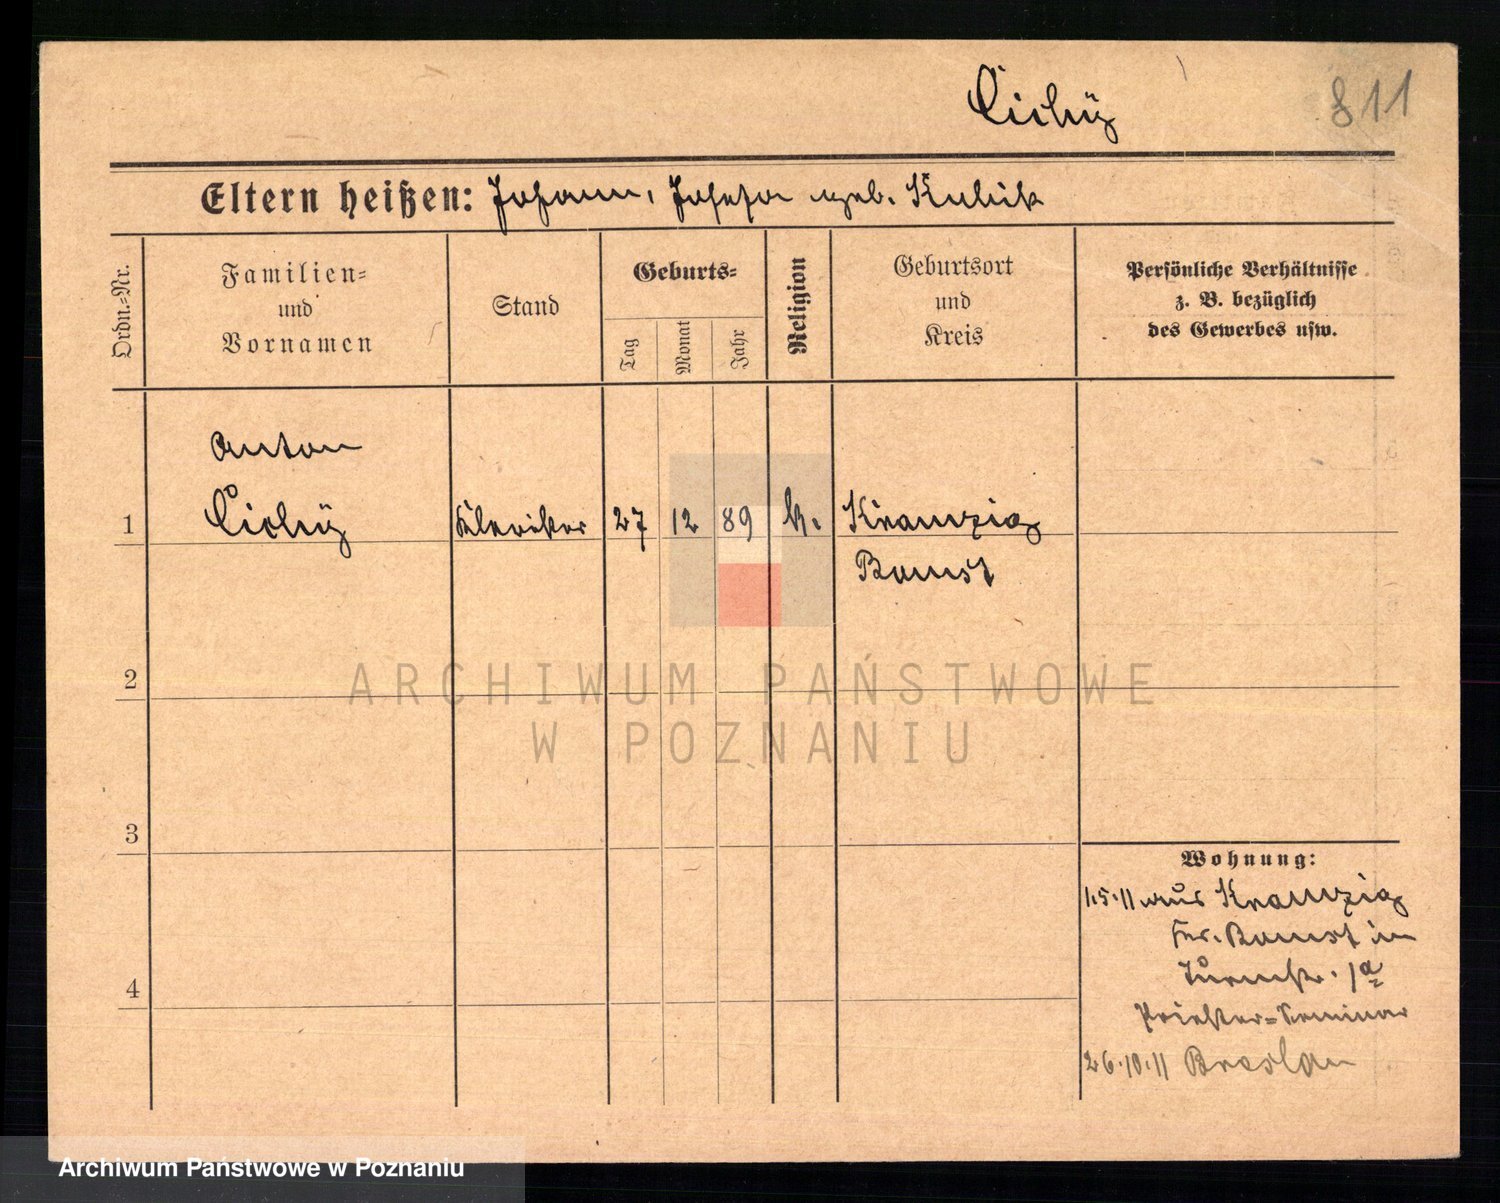 Cichÿ
811
Eltern heißen: Johann, Josefa geb. Kubik
Ordn.-Nr.
Familien-
und
Vornamen
Stand
Geburts-
Tag
Monat
Jahr
Religion
Geburtsort
und
Kreis
Persönliche Verhältnisse
z. B. bezüglich
des Gewerbes usw.
Anton
1 Cichÿ Kleriker 27 12 89 k. Kranzig
Bomst
2
3
4
Wohnung:
1.5.11 aus Kranzig
Kr. Bomst in
Turmstr. 1a
Priester-Seminar
26.10.11 Breslau
ARCHIWUM PAŃSTWOWE
W POZNANIU
Archiwum Państwowe w Poznaniu